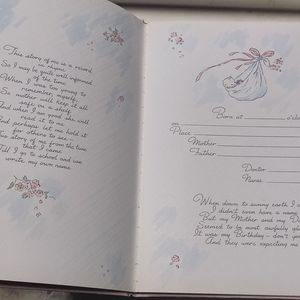 This story of me is a record
in rhyme
So I may be quite well informed
of the time
When I was too young to
remember, myself,
So mother will keep it all
safe on a shelf
And when I am good she will
read it to me
And perhaps let me hold it
for others to see
The story of me from the time
that I came
Till I go to school and use
write my own name
Born at
on
Place
Mother
Father
Doctor
Nurse
When down to sunny earth I
I didn't even have a
But my Mother and my D
Seemed to be most awfully gl
It was my Birthday - don't yo
And they were expecting me